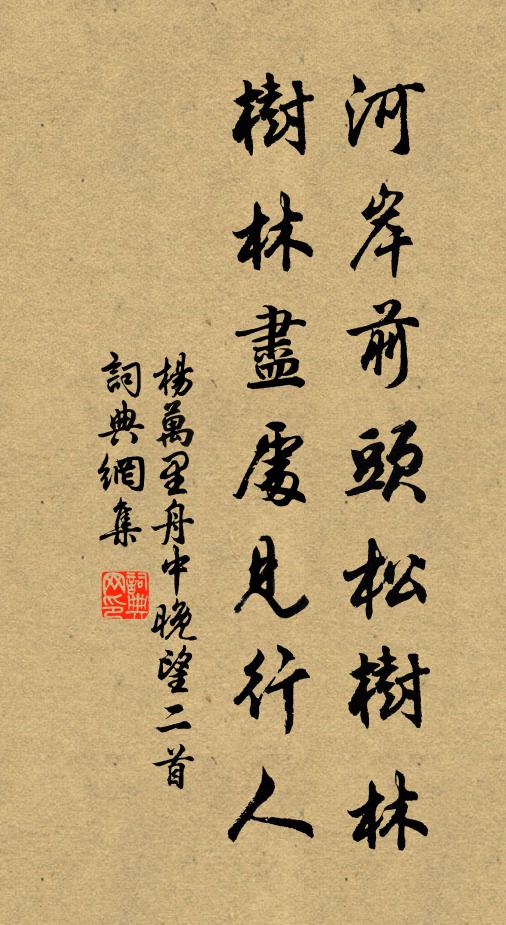 河岸前頭松樹林
樹林盡處見行人
楊萬里舟中晚望二首
詞典網集
詞典網印